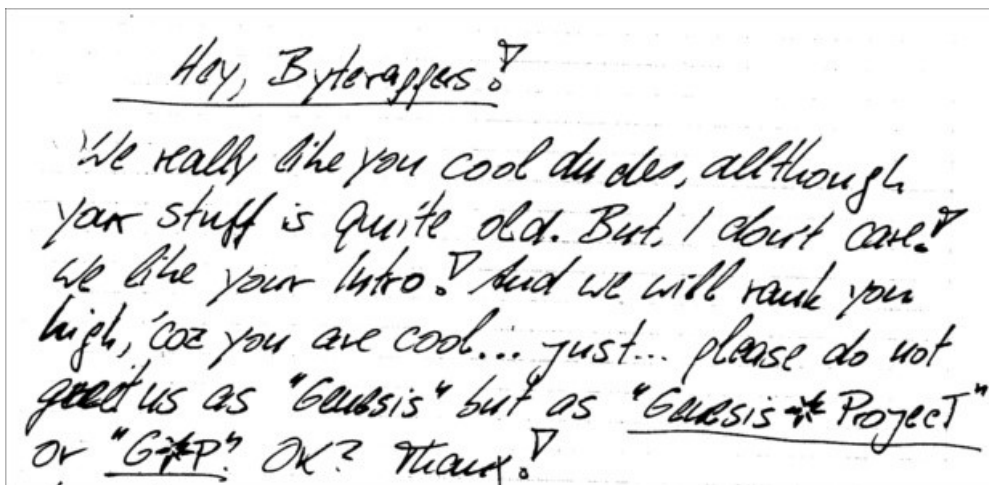 Hey, Byterappers!
We really like you cool dudes, allthough
your stuff is quite old. But, I don't care!
We like your Intro! And we will rank you
high, 'coz you are cool... just... please do not
greet us as "Genesis" but as "Genesis * Project"
or "G*P". OK? Thanx!